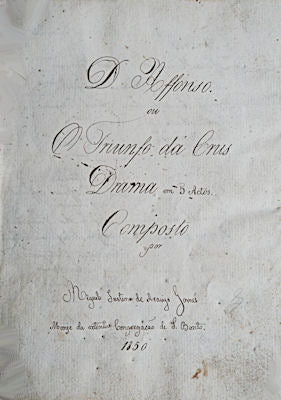 D. Affonso.
ou
O Triunfo da Crus
Drama em 3 Actos.
Composto
por
Miguel Justino de Araujo Gomes
Monge da extincta Congregação de S. Bento.
1850